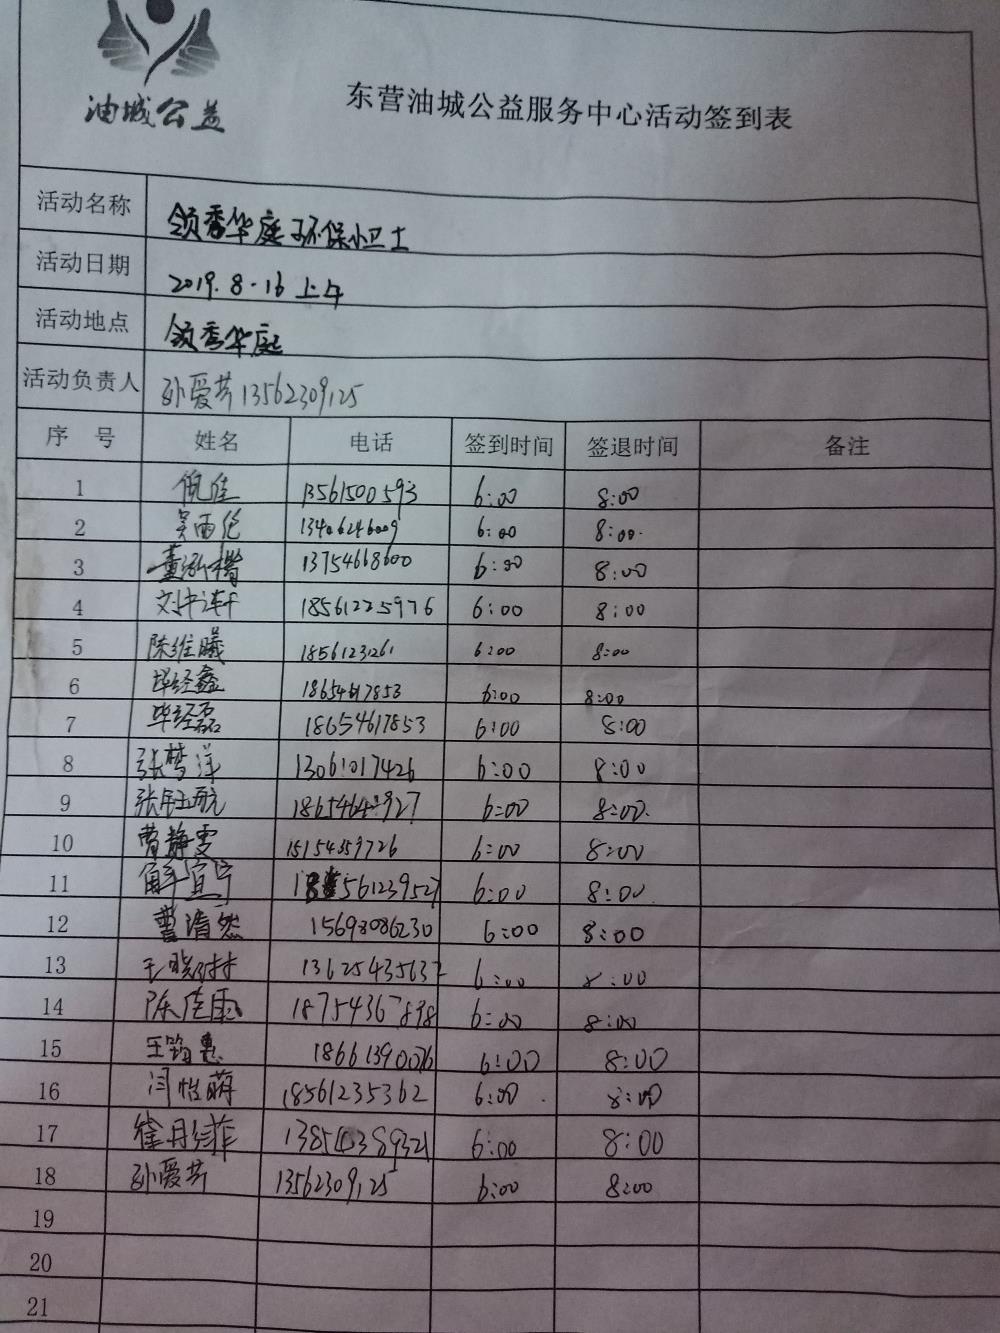 油城公益
东营油城公益服务中心活动签到表
活动名称 领秀华庭环保小卫士
活动日期 2019.8.16上午
活动地点 领秀华庭
活动负责人 孙爱芹13562309125
序号 姓名 电话 签到时间 签退时间 备注
1 倪佳 13561500593 6:00 8:00
2 吴雨伦 13406246009 6:00 8:00
3 13754668600 6:00 8:00
4 18561225976 6:00 8:00
5 陈维曦 18561231261 6:00 8:00
6 毕经鑫 18654617853 6:00 8:00
7 毕经磊 18654617853 6:00 8:00
8 张梦洋 13061017426 6:00 8:00
9 张钰航 6:00 8:00
10 曹静雯 15154359726 6:00 8:00
11 解宜宁 6:00 8:00
12 曹清然 15698086230 6:00 8:00
13 王晓 13625435637 6:00 8:00
14 陈佳雨 18754367898 6:00 8:00
15 王筠惠 18661390076 6:00 8:00
16 闫怡萌 18561235362 6:00 8:00
17 徐丹菲 13854389321 6:00 8:00
18 孙爱芹 13562309125 6:00 8:00
19
20
21